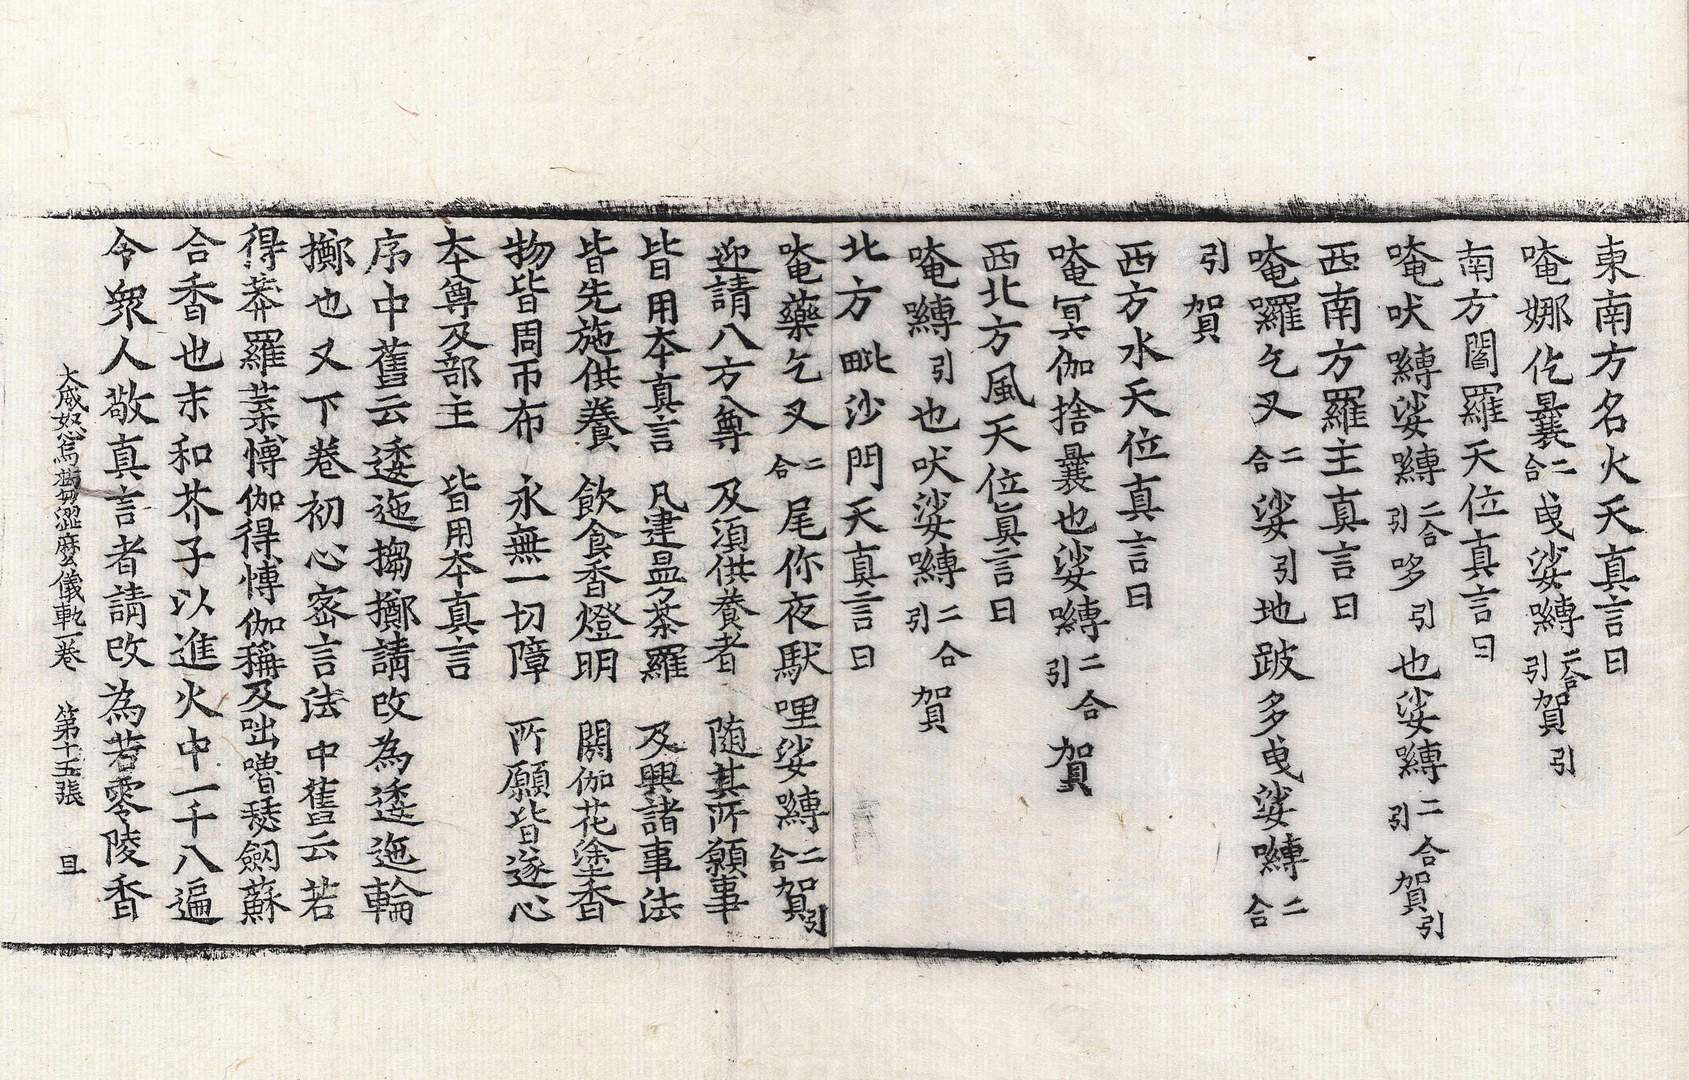 東南方名火天真言曰
唵娜仡曩二合曵娑嚩二合引賀引
南方閻羅天位真言曰
唵吠嚩娑嚩二合引哆引也娑嚩二合引賀引
西南方羅主真言曰
唵囉乞叉二合娑引地跛多曵娑嚩二合
引賀
西方水天位真言曰
唵冥伽捨曩也娑嚩二合引賀
西北方風天位真言曰
唵嚩引也吠娑嚩二合引賀
北方毗沙門天真言曰
唵藥乞叉二合尾你夜馱哩娑嚩二合賀引
迎請八方尊 及須供養者 随其所願事
皆用本真言 凡建曼茶羅 及興諸事法
皆先施供養 飲食香燈明 閼伽花塗香
物皆周帀布 永無一切障 所願皆遂心
本尊及部主 皆用本真言
序中舊云逶迤搊擲請改為逶迤輪
擲也又下巻初心密言法中舊云若
得莽羅菜愽伽得愽伽稱及咄嚕瑟劒蘇
合香也末和芥子以進火中一千八遍
令衆人敬真言者請改為若零陵香
大威怒烏芻澀麼儀軌一巻 第十五張 旦